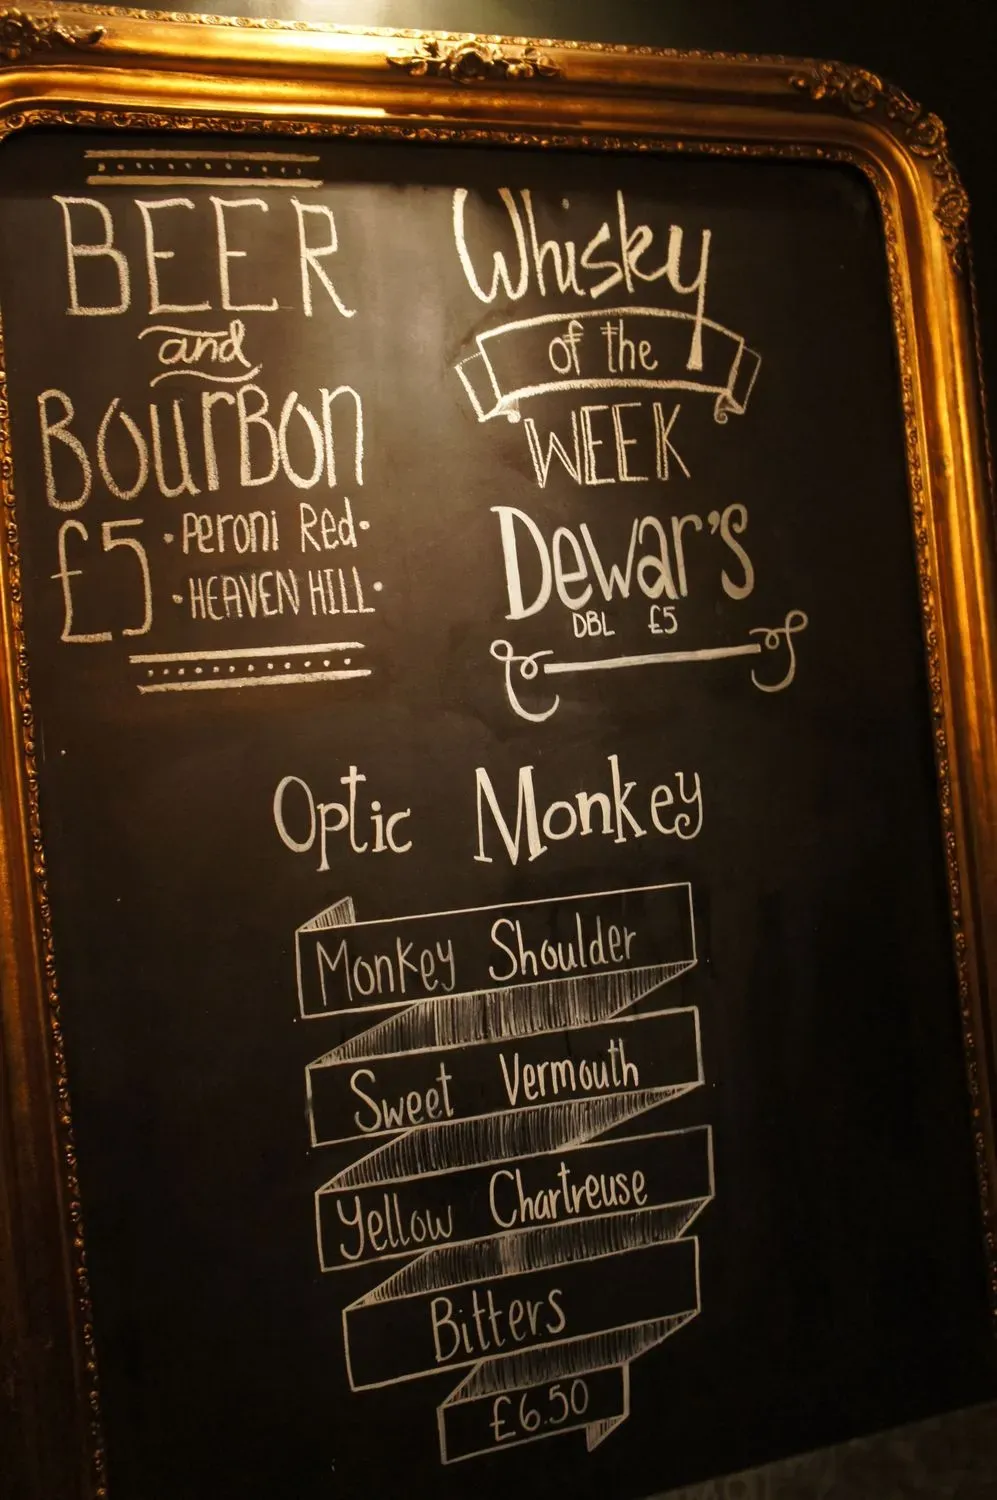 BEER
and
BourBon
£5 · Peroni Red ·
· HEAVEN HILL ·
Whisky
of the
WEEK
Dewar's
DBL £5
Optic Monkey
Monkey Shoulder
Sweet Vermouth
Yellow Chartreuse
Bitters
£6.50